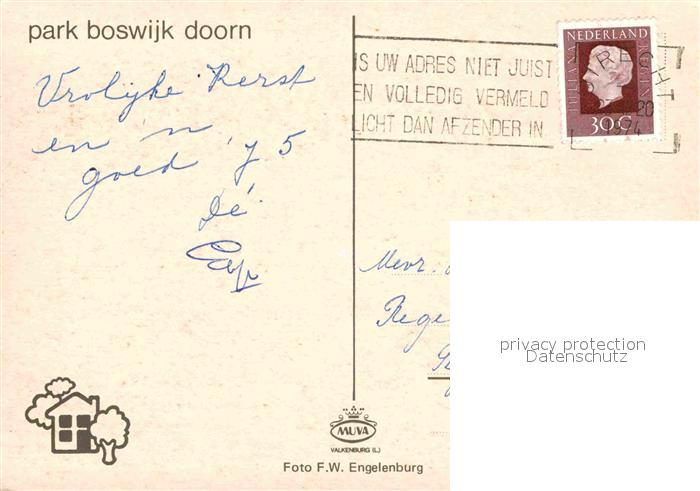 park boswijk doorn
Vrolijke Kerst
en 'n
goed '75
Dé
IS UW ADRES NIET JUIST
EN VOLLEDIG VERMELD
LICHT DAN AFZENDER IN
NEDERLAND
JULIANA REGINA
30 c
UTRECHT
20
1974
Mevr.
Rege
privacy protection
Datenschutz
MUVA
VALKENBURG (L.)
Foto F.W. Engelenburg